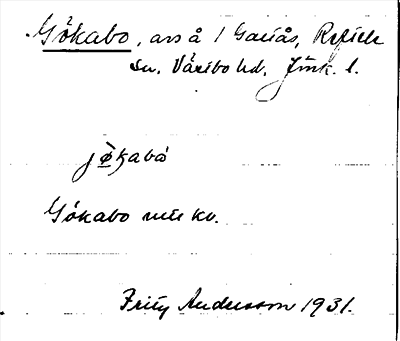 Gökabo, avs å 1 Garås, Reftele
sn. Västbo hd. Jönk. l.
jøkabo
Gökabo mur kv.
Fritz Andersson 1931.